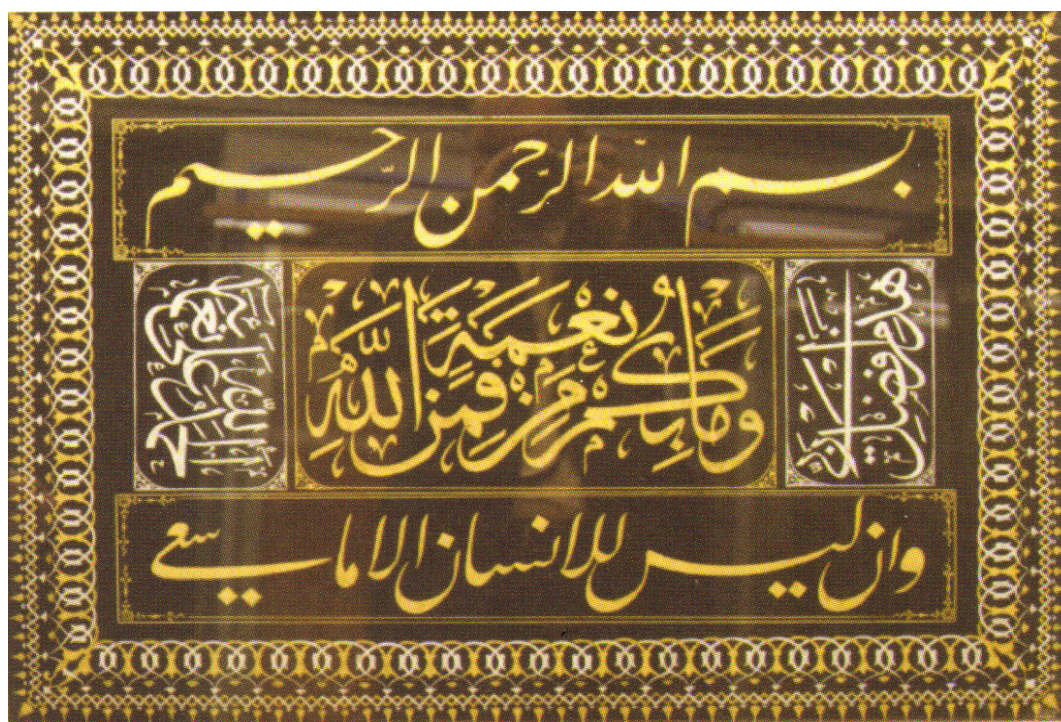 بسم الله الرحمن الرحيم
وَمَا بِكُم مِّن نِّعْمَةٍ فَمِنَ اللَّهِ
وان ليس للانسان الا ما سعى